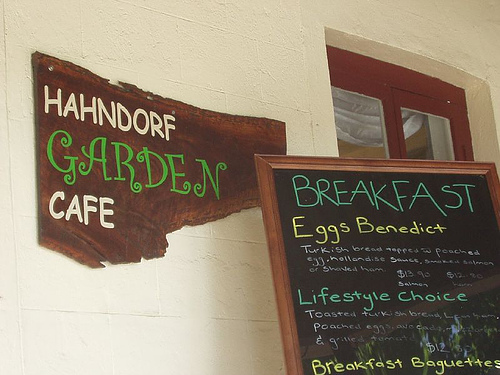 HAHNDORF
GARDEN
CAFE
BREAKFAST
Eggs Benedict
Turkish bread topped w poached
egg, hollandise sauce, smoked salmon
or shaved ham $13.90 $12.90
salmon ham
Lifestyle Choice
Toasted turkish bread,
Poached eggs, avocado,
& grilled tomato
$12.
Breakfast Baguettes